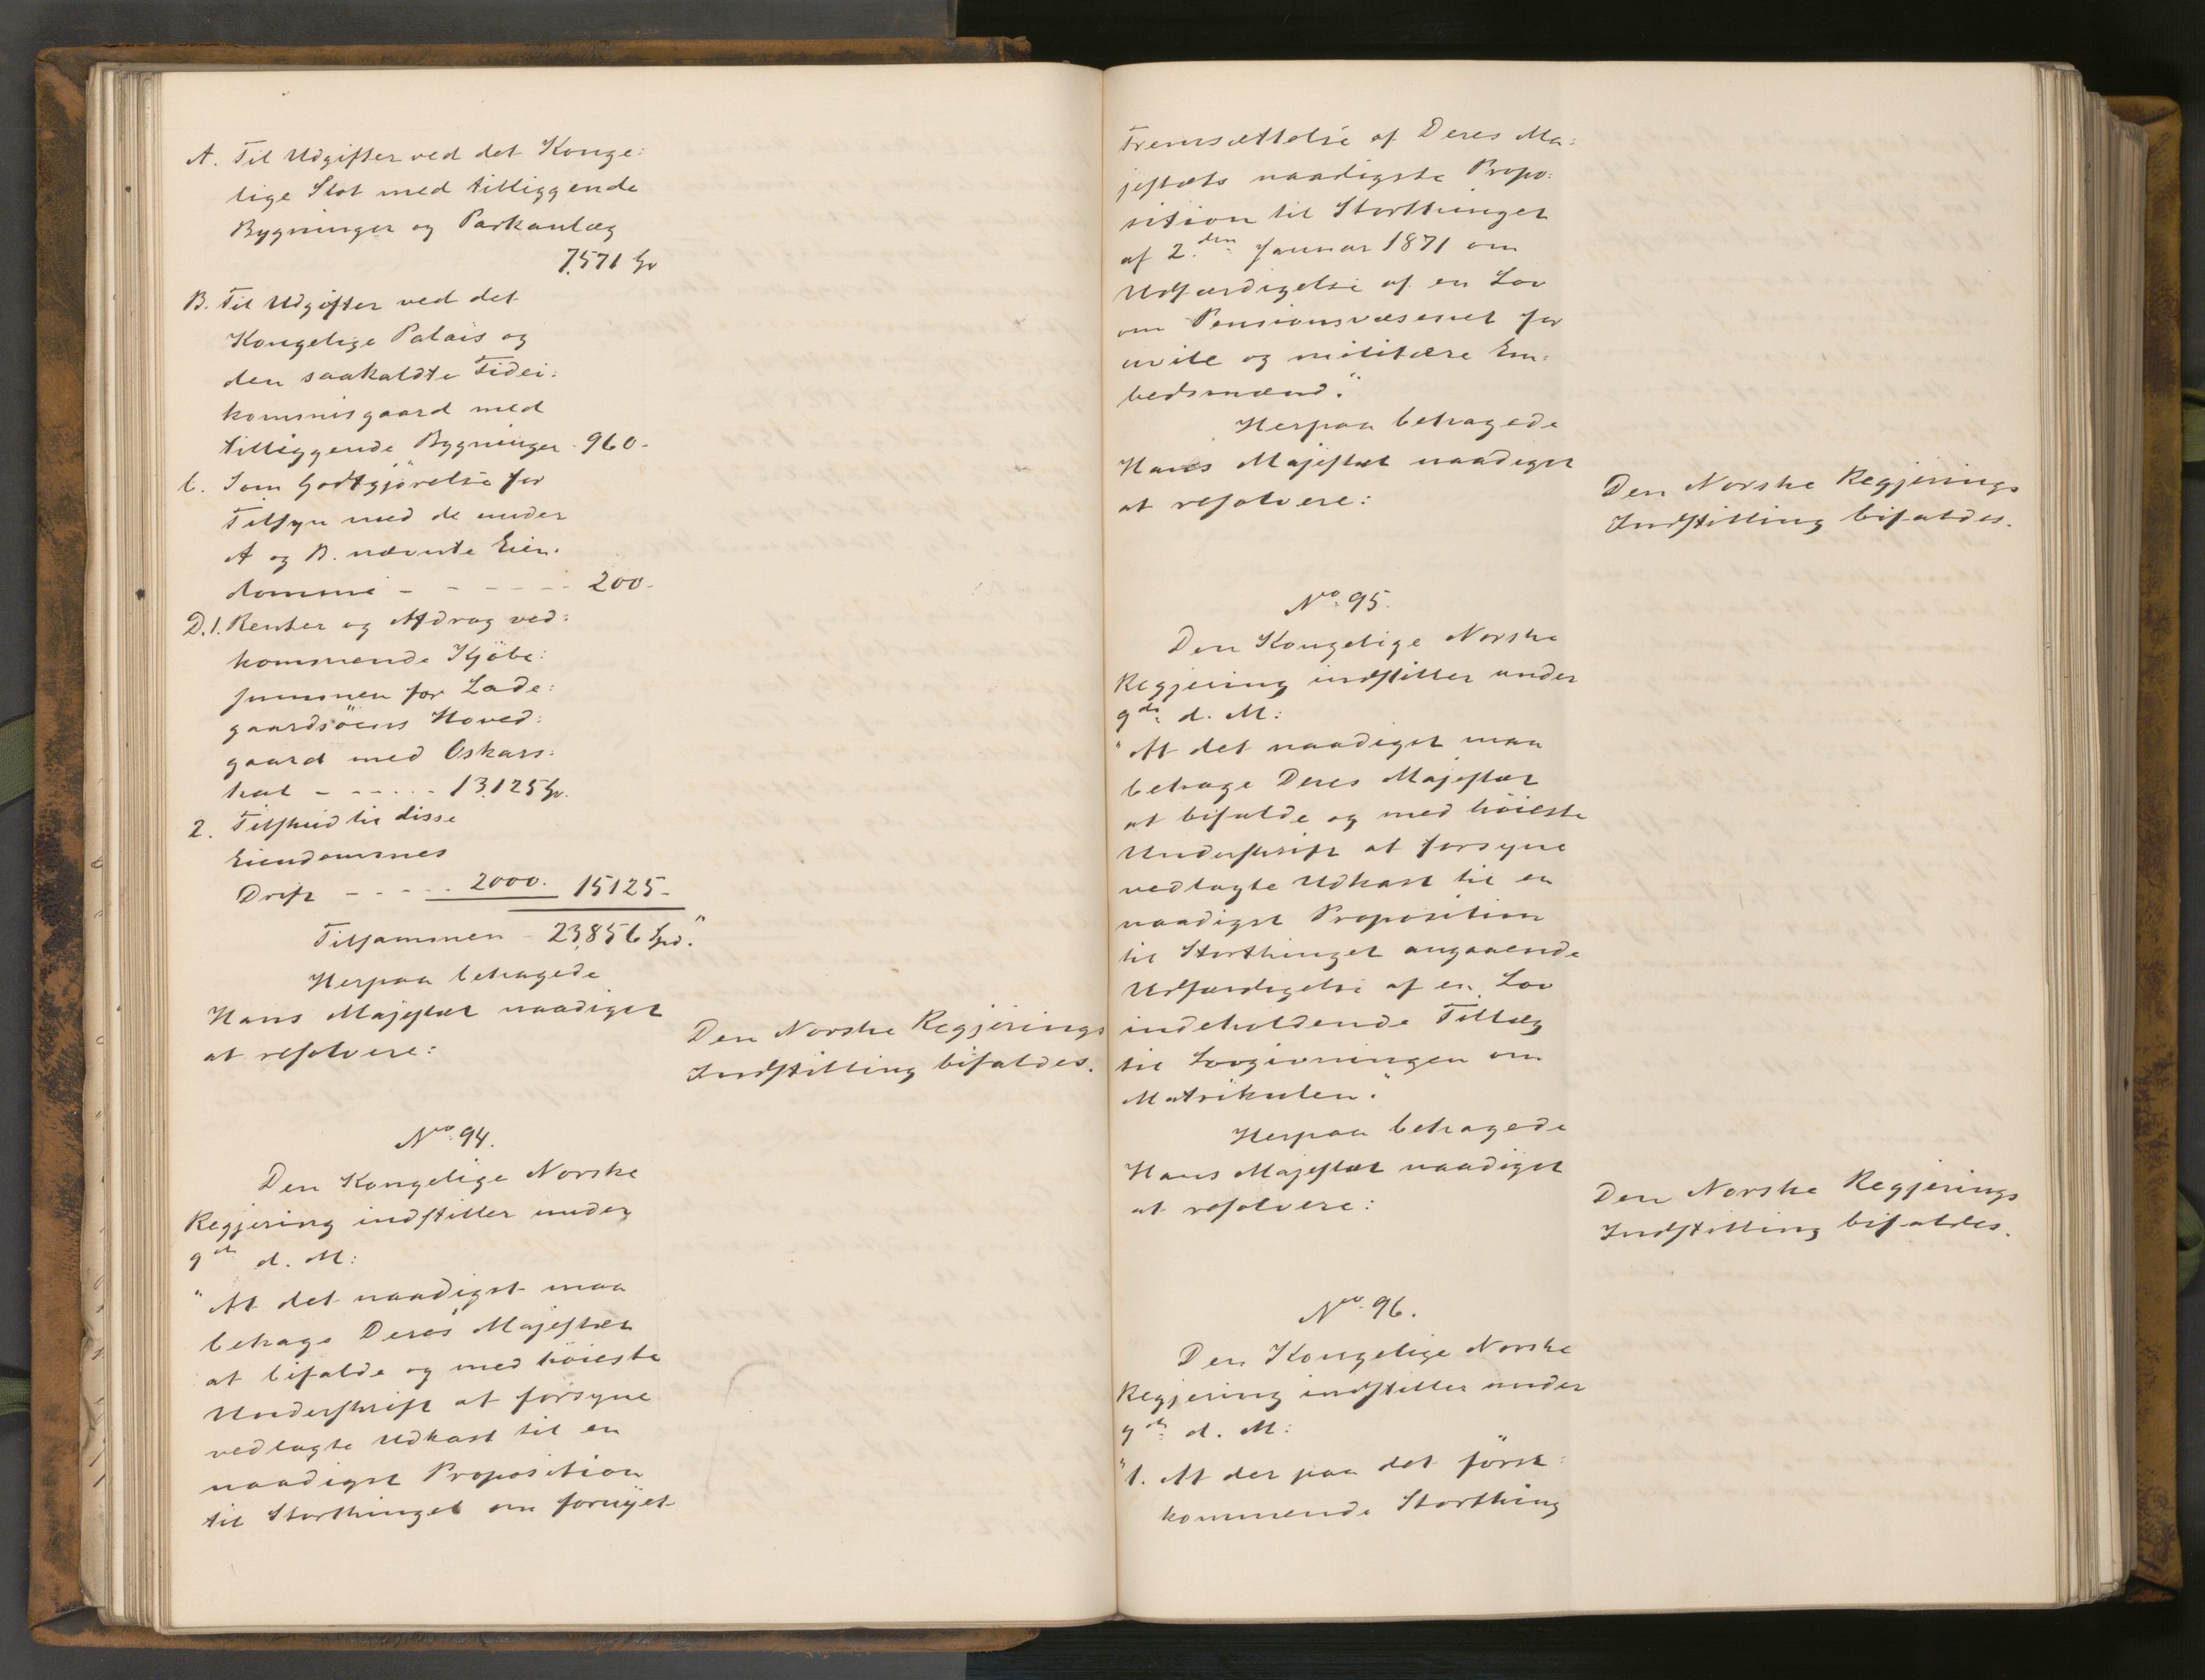 A. Til Udgifter ved det Konge:
lige Slot med tilliggende
Bygninger og Parkanlæg
7,571 Sp
B. Til Udgifter ved det
Kongelige Palais og
den saakaldte Fidei:
kommisgaard med
tilliggende Bygninger - 960 -
C. Som Godtgjörelse for
Tilsyn med de under
A og B. nævnte Eien:
domme - - - - - - 200 -
D.1. Renter og Afdrag ved:
kommende Kjöbe:
summen for Lade:
gaardsöens Hoved:
gaard med Oskars:
hal - - - - - - 13,125 Sp.
2. Tilskud til disse
Eiendommes
Drift - - - - - 2000. 15125 -
Tilsammen - 23,856 Spd."
Herpaa behagede
Hans Majestæt naadigst
at resolvere:
Den Norske Regjerings
Indstilling bifaldes.
No. 94.
Den Kongelige Norske
Regjering indstiller under
9de d. M:
"At det naadigst maa
behage Deres Majestæt
at bifalde og med höieste
Underskrift at forsyne
vedlagte Udkast til en
naadigst Proposition
til Storthinget om fornyet
Fremsættelse af Deres Ma:
jestæts naadigste Propo:
sition til Storthinget
af 2.den Januar 1871 om
Udfærdigelse af en Lov
om Pensionsvæsenet for
civile og militære Em:
bedsmænd."
Herpaa behagede
Hans Majestæt naadigst
at resolvere:
Den Norske Regjerings
Indstilling bifaldes.
No. 95.
Den Kongelige Norske
Regjering indstiller under
9de d. M:
"At det naadigst maa
behage Deres Majestæt
at bifalde og med höieste
Underskrift at forsyne
vedlagte Udkast til en
naadigst Proposition
til Storthinget angaaende
Udfærdigelse af en Lov
indeholdende Tillæg
til Lovgivningen om
Matrikulen."
Herpaa behagede
Hans Majestæt naadigst
at resolvere:
Den Norske Regjerings
Indstilling bifaldes.
No. 96.
Den Kongelige Norske
Regjering indstiller under
9de d. M:
"1. At der paa det först:
kommende Storthing